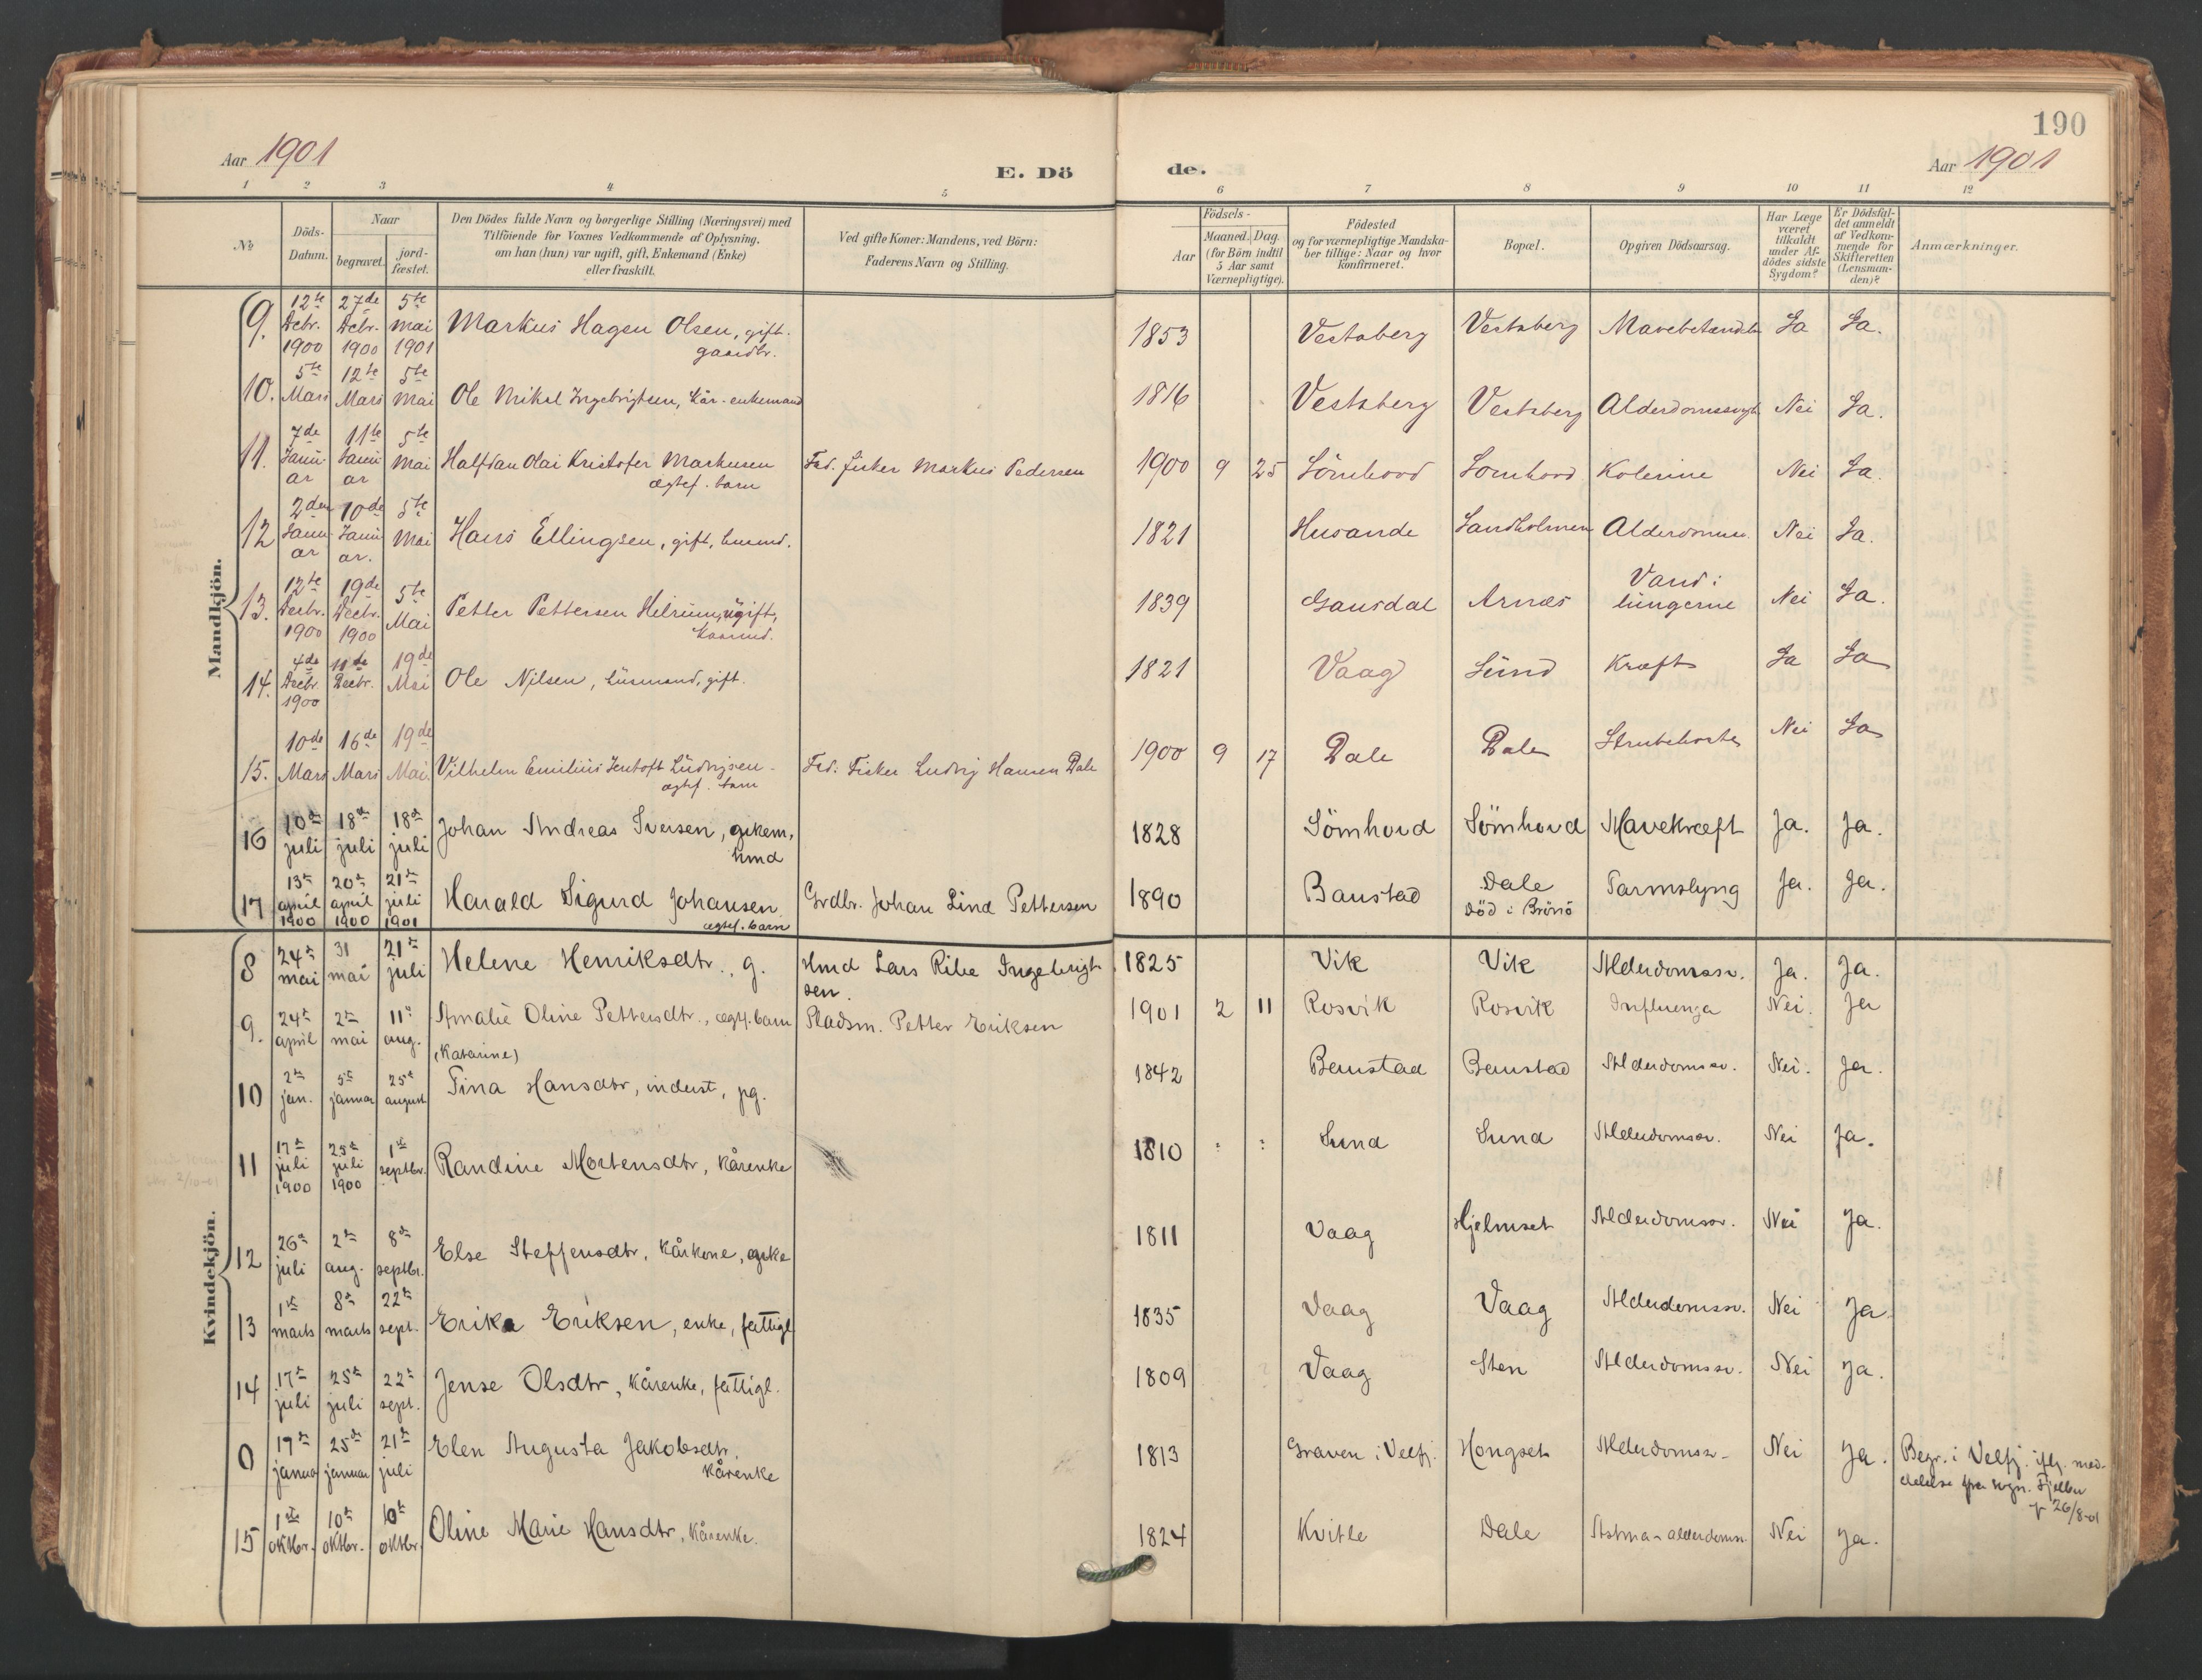 190
Aar 1901
E. Dö de.
Aar 1901
1 2 3 4 5 6 7 8 9 10 11 12
No
Döds-
Datum.
Naar
begravet.
jord-
fæstet.
Den Dödes fulde Navn og borgerlige Stilling (Næringsvei) med
Tilföiende for Voxnes Vedkommende af Oplysning,
om han (hun) var ugift, gift, Enkemand (Enke)
eller fraskilt.
Ved gifte Koner: Mandens, ved Börn:
Faderens Navn og Stilling.
Födsels-
Aar
Maaned. Dag.
(for Börn indtil
5 Aar samt
Værnepligtige).
Födested
og for værnepligtige Mandska-
ber tillige: Naar og hvor
konfirmeret.
Bopæl.
Opgiven Dödsaarsag.
Har Læge
været
tilkaldt
under Af-
dödes sidste
Sygdom?
Er Dödsfal-
det anmeldt
af Vedkom-
mende for
Skifteretten
(Lensman-
den)?
Anmærkninger.
Mandkjön.
9. 12te Decbr. 1900 27de Decbr. 1900 5te mai 1901 Markus Hagen Olsen, gift. gaardbr. 1853 Vestaberg Vestaberg Ja Ja.
10. 5te Mars 12te Mars 5te Mai Ole Mikal Ingebrigtsen, kår-enkemand 1816 Vestaberg Vestaberg Nei Ja.
11. 7de Januar 11te Januar 5te Mai Halfdan Olai Kristofer Markusen ægtef. barn Fad. fisker Markus Pedersen 1900 9 25 Sömhovd Sömhovd Kolerine Nei Ja.
12 2den Januar 10de Januar. 5te Mai Hans Ellingsen, gift, husmd. 1821 Husande Sandholmen Alderdomssv. Nei Ja.
13. 12te Decbr. 1900 19de Decbr. 1900 5te Mai Petter Pettersen ugift, 1839 Gausdal Arnæs Vand i lungerne Nei Ja.
14. 4de Decbr. 1900 11de Decbr. 19de Mai Ole Nilsen, husmand, gift. 1821 Vaag Sund Kræft Ja Ja
15. 10de Mars 16de Mars 19de Mai Vilhelm Emilius Jentoft Ludvigsen ægtef. barn Fad: Fisker Ludvig Hansen Dale 1900 9 17 Dale Dale Strubehoste Nei Ja
16 10de juli 18de juli 18de juli Johan Andreas Iversen, gekem, hmd 1828 Sömhovd Sömhovd Mavekræft Ja. Ja.
17 13te april 1900 20te april 1900 21te juli 1901 Harald Sigurd Johansen ægtef. barn Grdbr. Johan Lind Pettersen 1890 Baustad Dale Död i Brönö Tarmslyng Ja. Ja.
Kvindekjön.
8 24te mai 31 mai 21te juli Helene Henriksdtr., g. Hmd Lars Ribe Ingebrigtsen. 1825 Vik Vik Alderdomssv. Ja. Ja.
9. 24te april 2te mai 11te aug. Amalie Oline Pettersdtr., ægtf. barn Pladsm. Petter Eriksen 1901 2 11 Rosvik Rosvik Influenza Nei. Ja
(Katarine)
10 2te jan. 5te januar 25te august Tina Hansdtr, inderst, pg. 1842 Benstad Benstad Alderdomssv. Nei. Ja.
11 17te juli 1900 25te juli 1900 1ste septbr. Randine Mortensdtr, kårenke 1810 Sund Sund Alderdomssv. Nei Ja.
12 26te juli 2te aug. 8de septbr. Else Steffensdtr, kårkone, gekе 1811 Vaag Hjelmset Alderdomssv. Nei Ja.
13 1ste marts 8de marts 22te sept. Erika Eriksen, enke, fattigl 1835 Vaag Vaag Alderdomssv. Nei Ja
14 17te juli 25te juli 22te sept. Jense Olsdtr, kårenke, fattigl. 1809 Vaag Sten Alderdomssv. Nei Ja.
0 17de januar 25de januar 21te juli Elen Augusta Jakobsdtr, kårenke 1813 Graven i Velfj. Hongset Alderdomssv. Nei Ja. Begr. i Velfj. iflg. med-
delelse fra sogn. Fjelbu
p 26/8-01
15 1ste oktbr. 10de oktbr. 10de oktbr. Oline Marie Hansdtr, kårenke. 1824 Kvitle Dale Astma - alderdomssv. Nei Ja.